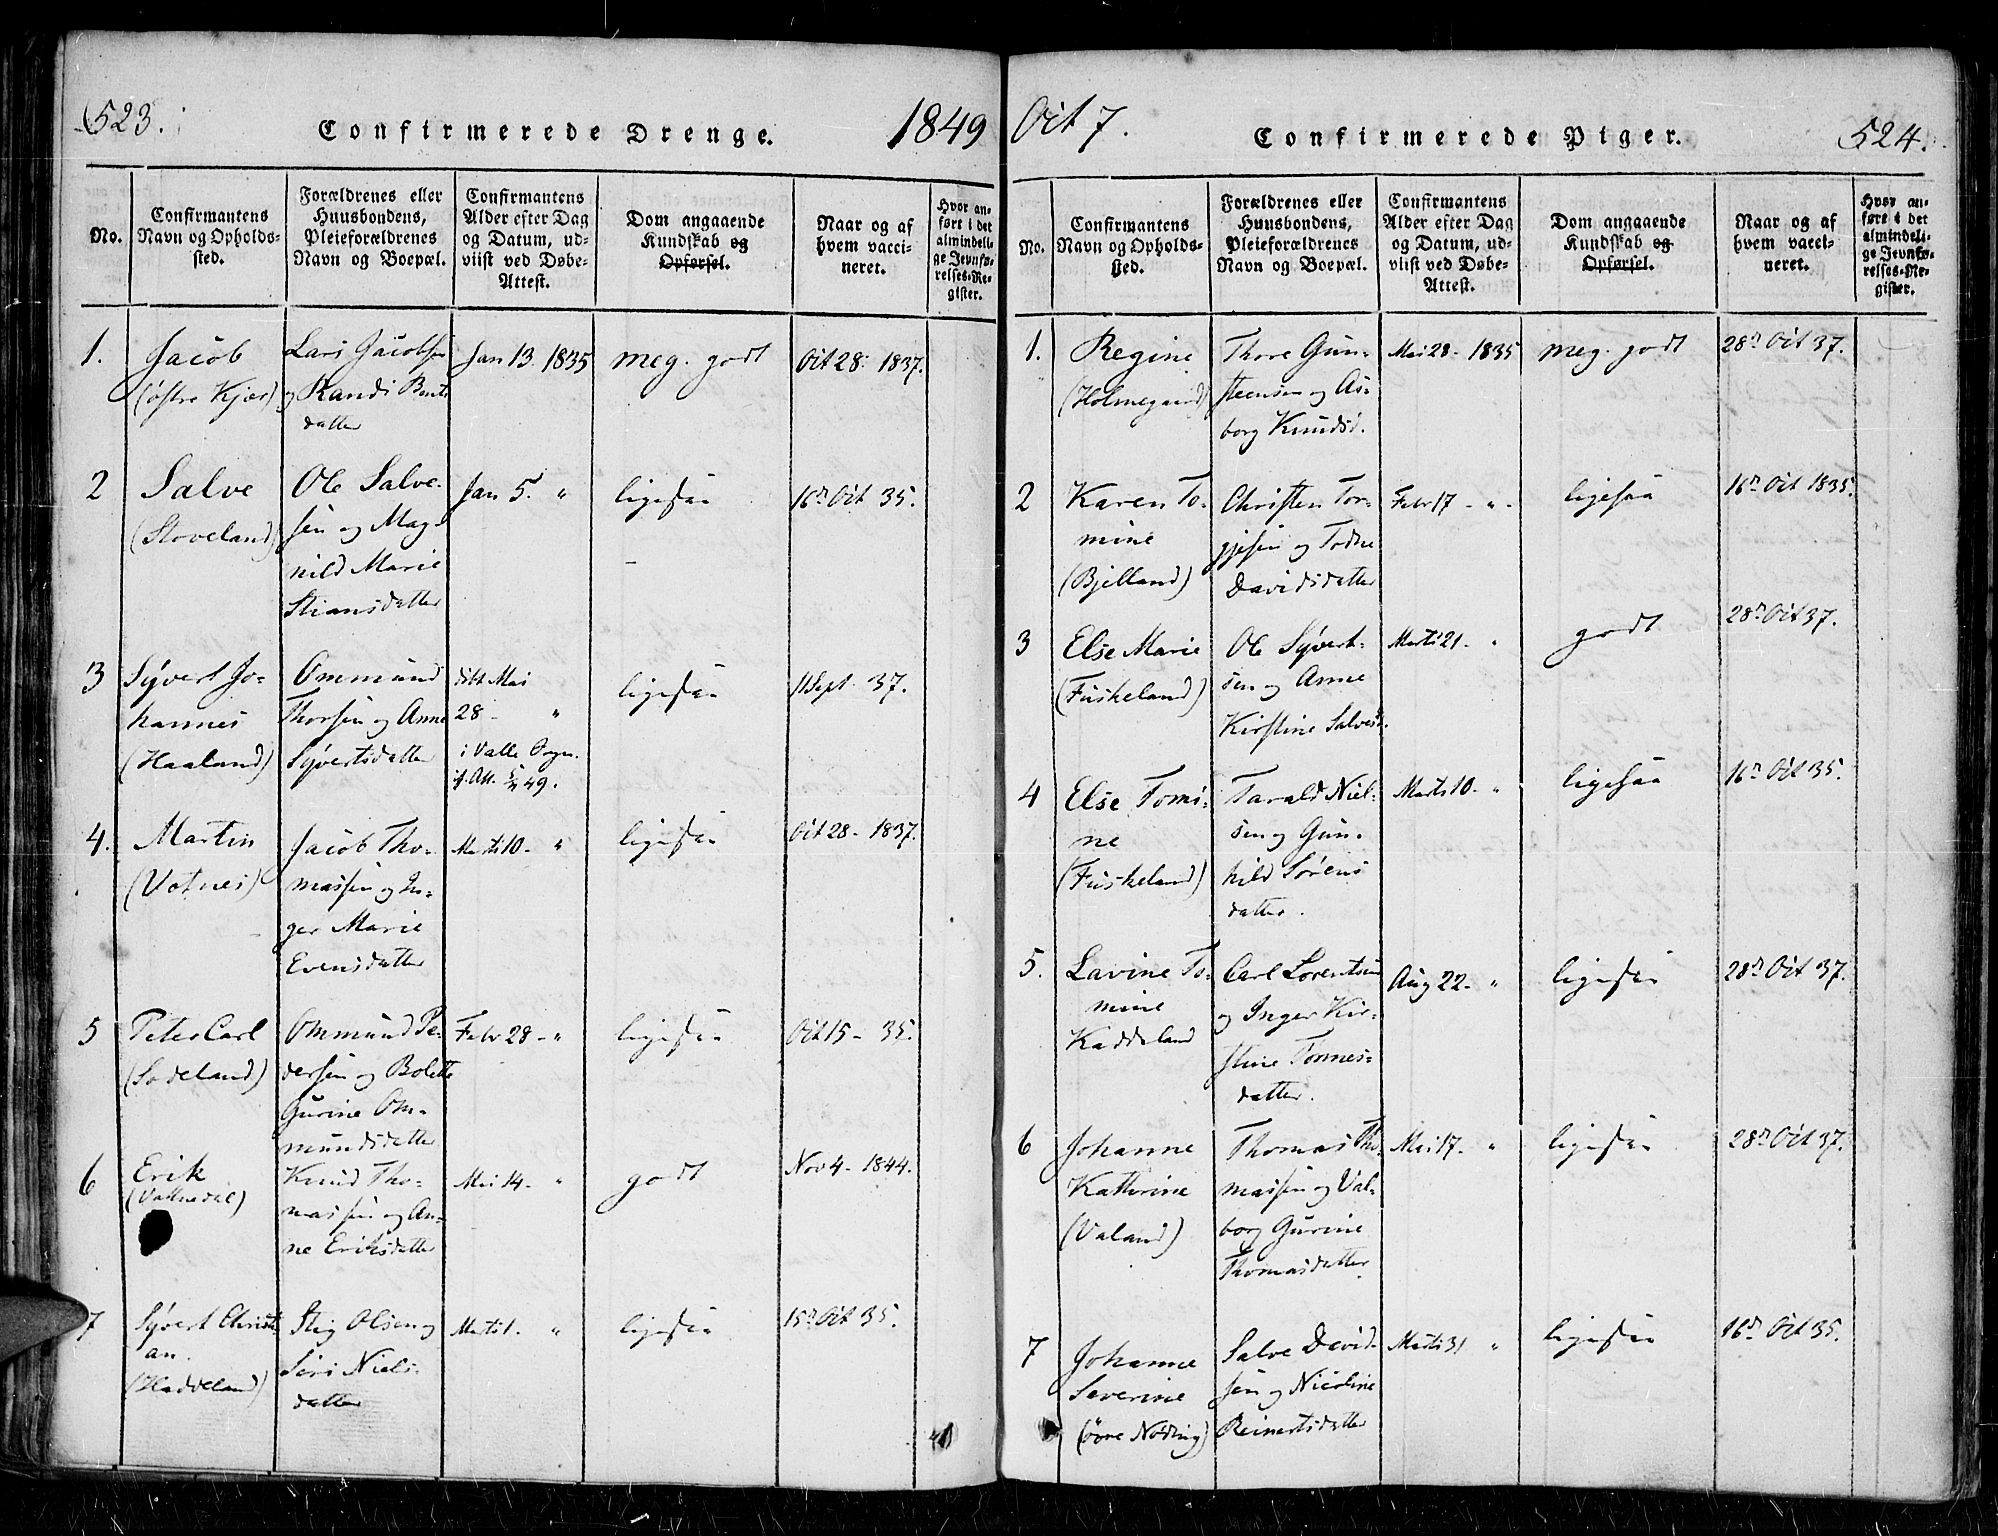 523.
Confirmerede Drenge.
1849
No.
Confirmantens
Navn og Opholds-
sted.
Forældrenes eller
Huusbondens,
Pleieforældrenes
Navn og Boepæl.
Confirmantens
Alder efter Dag
og Datum, ud-
viist ved Døbe-
Attest.
Dom angaaende
Kundskab og
Opførsel.
Naar og af
hvem vacci-
neret.
Hvor an-
ført i det
almindeli-
ge Jevnfø-
relses-Re-
gister.
1.
Jacob
(østre Kjær)
Lars Jacobsen
og Randi Bents
datter
Jan 13. 1835
meg. godt
Oct 28. 1837.
2
Salve
(Stoveland)
Ole Salve-
sen og Mag-
nild Marie
Stiansdatter
Jan 5. "
ligesaa
16de Oct 35.
3
Syvert Jo-
hannes
(Haaland)
Ommund
Thorsen og Anne
Syvertsdatter
døbt Mai
28 - "
i Valle Sogn
49.
ligesaa
11 Sept. 37.
4.
Martin
(Votnes)
Jacob Tho-
massen og In-
ger Marie
Evensdatter
Marts 10 - "
ligesaa
Oct 28 - 1837.
5
Peter Carl
(Sodeland)
Ommund Pe-
dersen og Bolette
Gurine Om-
mundsdatter
Febr 28 - "
ligesaa
Oct 15 - 35.
6
Erik
(Vatnedal)
Knud Tho-
massen og An-
ne Eriksdatter
Mai 14. "
godt
Nov 4 - 1844.
7
Syvert Christi-
an.
(Haddeland)
Stig Olsen og
Siri Niels-
datter
Marts 1. "
ligesaa
15de Oct 35.
Oct 7.
Confirmerede Piger.
524.
No.
Confirmantens
Navn og Opholds-
sted.
Forældrenes eller
Huusbondens,
Pleieforældrenes
Navn og Boepæl.
Confirmantens
Alder efter Dag
og Datum, ud-
viist ved Døbe-
Attest.
Dom angaaende
Kundskab og
Opførsel.
Naar og af
hvem vacci-
neret.
Hvor an-
ført i det
almindeli-
ge Jevnfø-
relses-Re-
gister.
1.
Regine
(Holmegaard)
Thore Gun-
steensen og As-
borg Knudsd.
Mai 28 - 1835
meg. godt
28de Oct 37.
2
Karen To-
mine
(Bjelland)
Christen Tor-
gjesen og Todne
Davidsdatter
Febr 17 - " -
ligesaa
16de Oct 1835.
3
Else Marie
(Fuskeland)
Ole Syvert-
sen og Anne
Kirstine Salvesd.
Marts 21 - "
godt
28de Oct 37.
4
Else Tomi-
ne
(Fuskeland)
Tarald Niel-
sen og Gun-
hild Sørens
datter.
Marts 10 - "
ligesaa
16de Oct 35.
5.
Lavine To-
mine
Kaddeland
Carl Lorentsen
og Inger Kir-
stine Tønnes-
datter.
Aug 22 - "
ligesaa
28de Oct 37.
6
Johanne
Kathrine
(Valand)
Thomas Tho-
massen og Val-
borg Gurine
Thomasdatter
Mai 17. "
ligesaa
28de Oct 37.
7
Johanne
Severine
(øvre Nøding)
Salve David-
sen og Nicoline
Reinertsdatter
Marts 31 "
ligesaa
16de Oct 35.